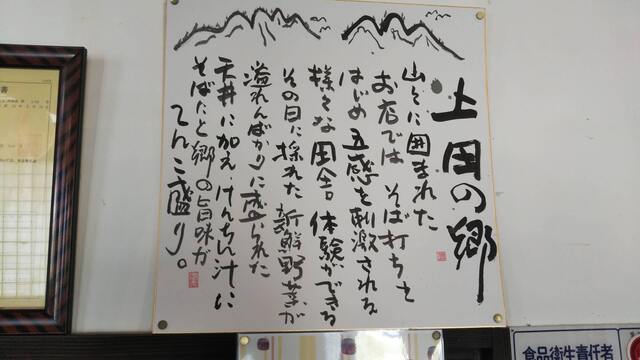 上田の郷
山々に囲まれた
お店では そば打ちを
はじめ 五感を刺激される
様々な田舎体験ができる
その日に採れた新鮮野菜が
溢れんばかりに盛られた
天丼に加え けんちん汁に
そばにと郷の旨味が
てんこ盛り。
食品衛生責任者